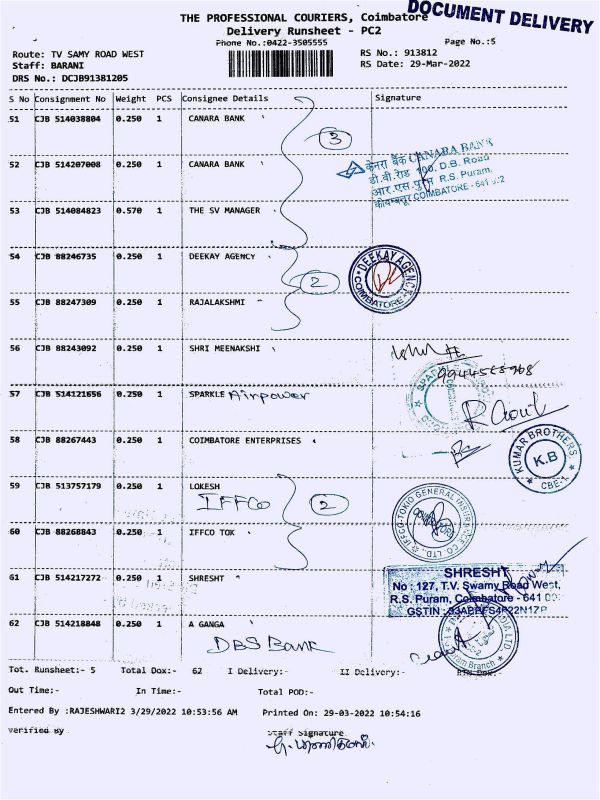 DOCUMENT DELIVERY
THE PROFESSIONAL COURIERS, Coimbatore
Delivery Runsheet - PC2
Phone No.:0422-3505555
Page No.:5
Route: TV SAMY ROAD WEST
RS No.: 913812
Staff: BARANI
RS Date: 29-Mar-2022
DRS No.: DCJB91381205
S No Consignment No Weight PCS Consignee Details Signature
51 CJB 514038804 0.250 1 CANARA BANK
3
केनरा बैंक CANARA BANK
डी.बी.रोड 100, D.B. Road
R.S. Puram,
कोयम्बतूर COIMBATORE - 641
52 CJB 514207008 0.250 1 CANARA BANK
53 CJB 514084823 0.570 1 THE SV MANAGER
54 CJB 88246735 0.250 1 DEEKAY AGENCY
2
DEEKAY AGENCY
COIMBATORE
55 CJB 88247309 0.250 1 RAJALAKSHMI
56 CJB 88243092 0.250 1 SHRI MEENAKSHI
57 CJB 514121656 0.250 1 SPARKLE Airpower
58 CJB 88267443 0.250 1 COIMBATORE ENTERPRISES
KUMAR BROTHERS
K.B
CBE-1
59 CJB 513757179 0.250 1 LOKESH
IFFCO
2
IFFCO-TOKIO GENERAL INSURANCE CO LTD.
60 CJB 88268843 0.250 1 IFFCO TOK
61 CJB 514217272 0.250 1 SHRESHT
SHRESHT
No : 127, T.V. Swamy Road West,
R.S. Puram, Coimbatore - 641
GSTIN :
62 CJB 514218848 0.250 1 A GANGA
DBS Bank
Tot. Runsheet:- 5 Total Dox:- 62 I Delivery:- II Delivery:-
Out Time:- In Time:- Total POD:-
Entered By :RAJESHWARI2 3/29/2022 10:53:56 AM Printed On: 29-03-2022 10:54:16
Verified By Staff Signature